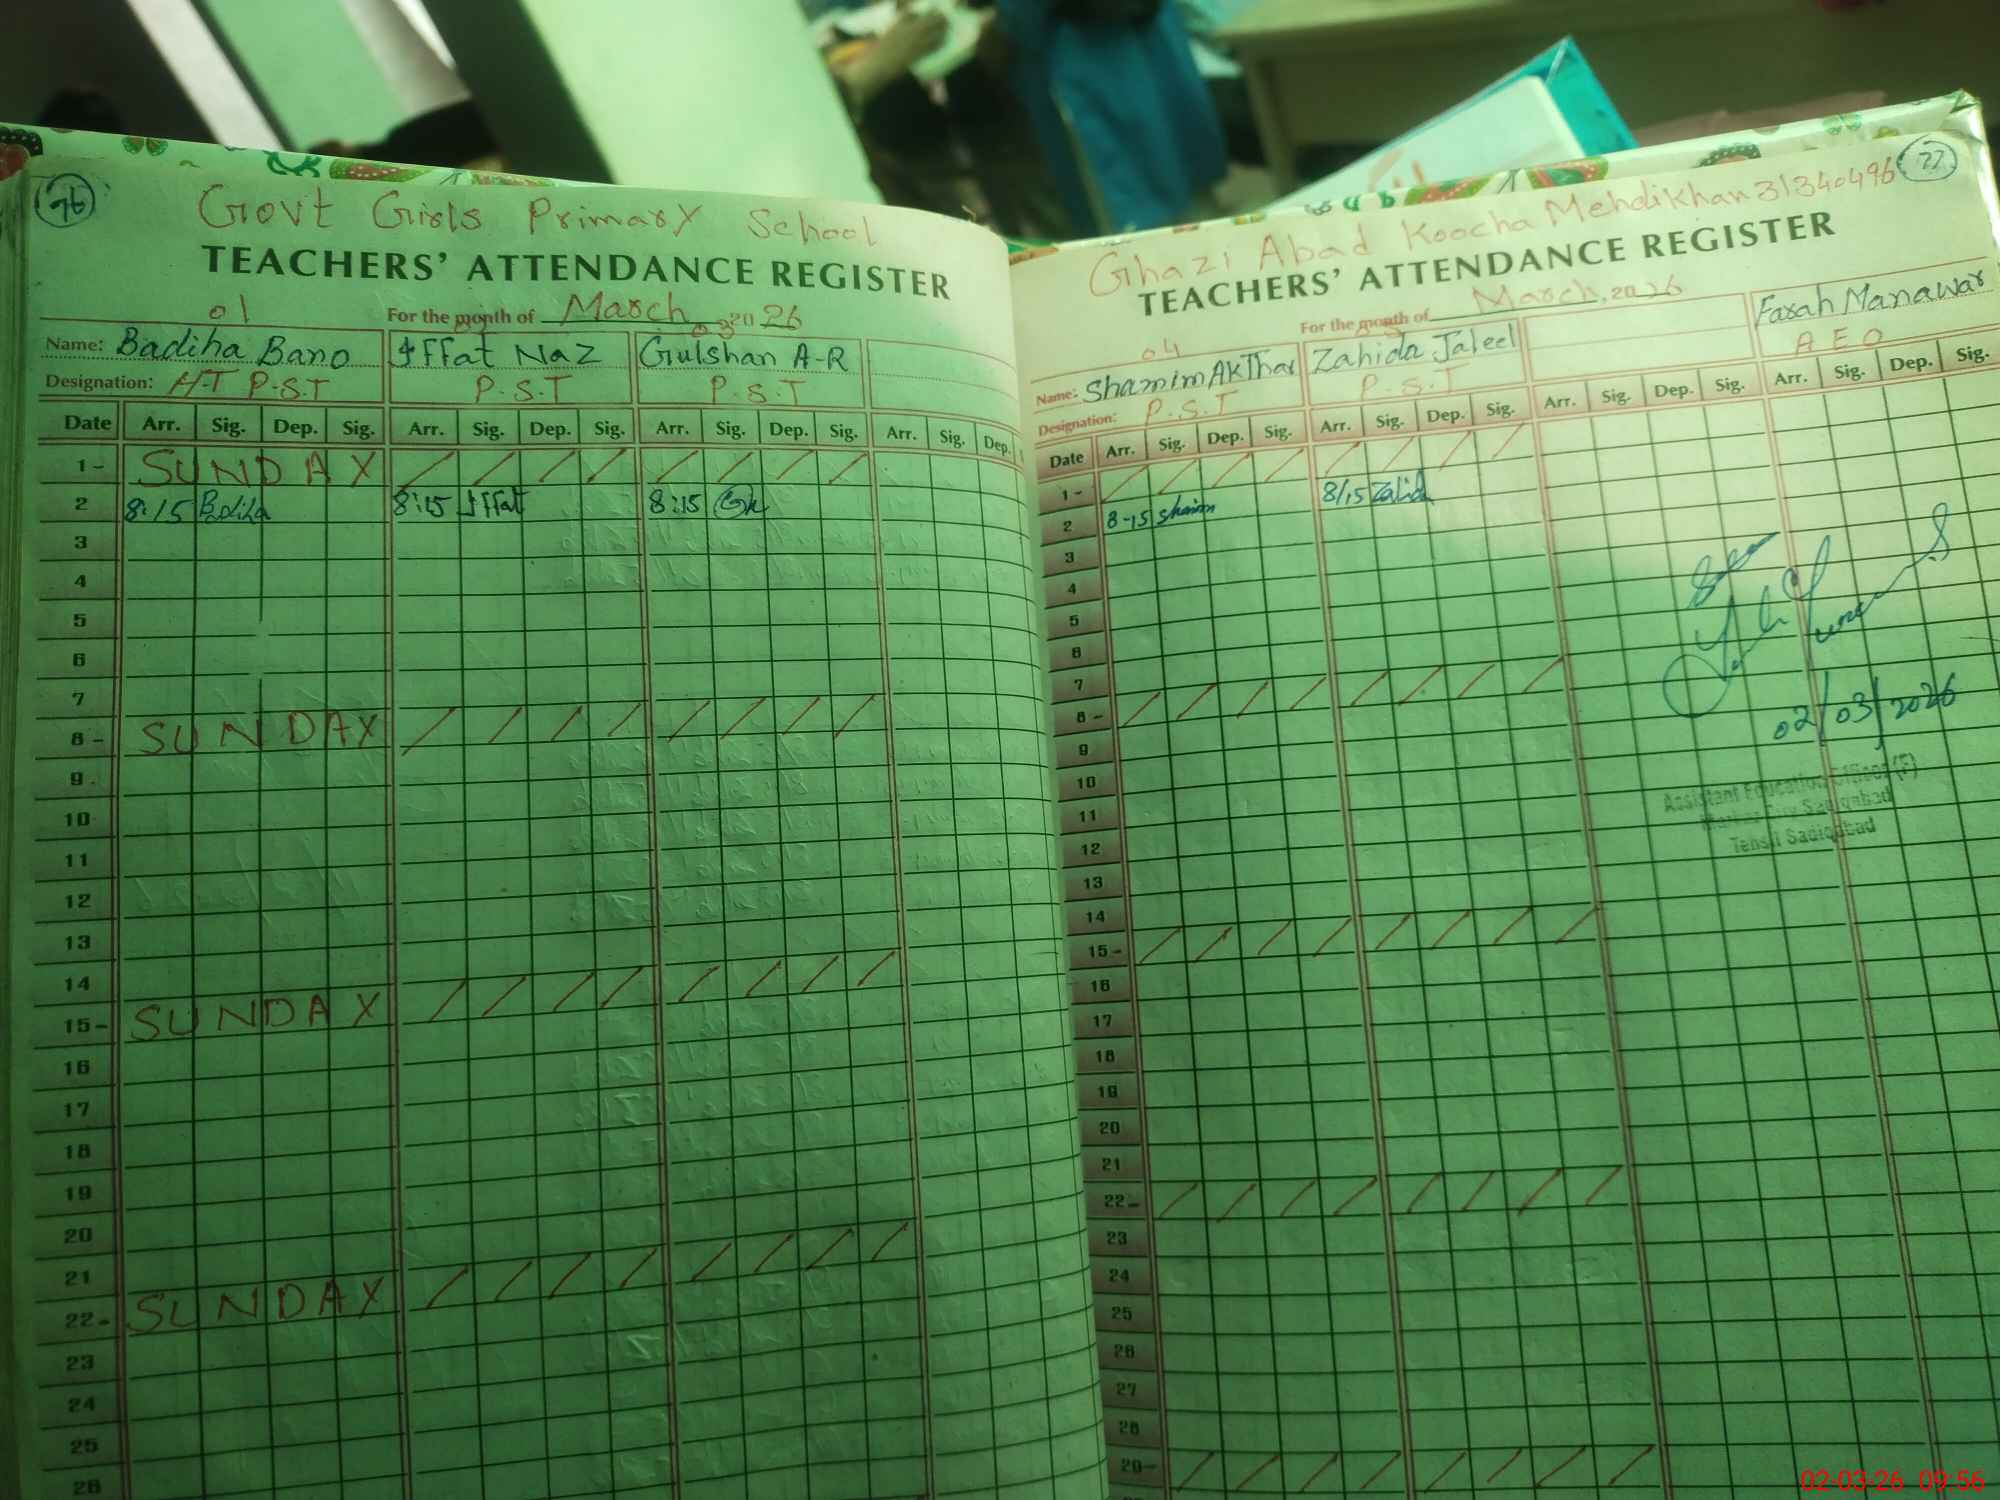 76
Govt Girls Primary School
TEACHERS' ATTENDANCE REGISTER
01
For the month of March 2026
03
Name: Badiha Bano Iffat Naz Gulshan A-R
Designation: H-T P.S.T P.S.T P.S.T
Date Arr. Sig. Dep. Sig. Arr. Sig. Dep. Sig. Arr. Sig. Dep. Sig. Arr. Sig. Dep.
1 - SUNDAY
2 8:15 Badiha 8:15 Iffat 8:15
3
4
5
6
7
8 - SUNDAY
9
10
11
12
13
14
15 - SUNDAY
16
17
18
19
20
21
22 - SUNDAY
23
24
25
26
77
Ghazi Abad Koocha Mehdi Khan 31340496
TEACHERS' ATTENDANCE REGISTER
For the month of March, 2026
04
Name: Shamim Akthar Zahida Jaleel Farah Manawar
Designation: P.S.T P.S.T A E O
Date Arr. Sig. Dep. Sig. Arr. Sig. Dep. Sig. Arr. Sig. Dep. Sig. Arr. Sig. Dep. Sig.
1 -
2 8-15 Shamim 8/15 Zahida
3
4
5
6
7
8 -
9
10
11
12
13
14
15 -
16
17
18
19
20
21
22 -
23
24
25
26
27
28
29 -
02/03/2026
Assistant Education Officer (F)
Markaz Sadiqabad
Tehsil Sadiqabad
02-03-26 09:56